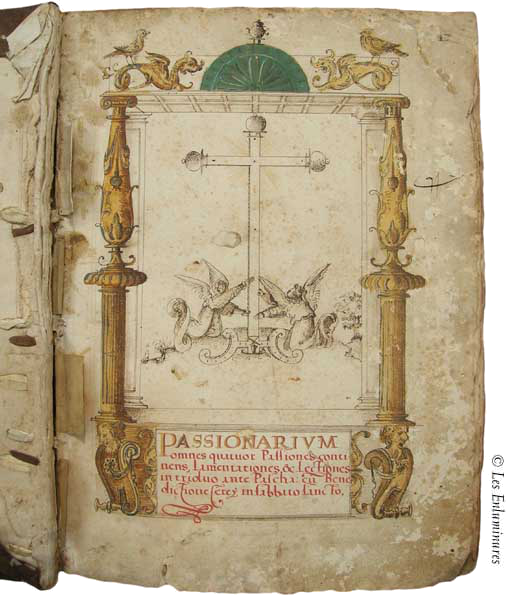 PASSIONARIVM
omnes quatuor Passiones conti
nens, Lamentationes & Lectiones
in triduo ante Pascha. Cū Bene
dictione Cerej in sabbato sancto,
© Les Enluminures